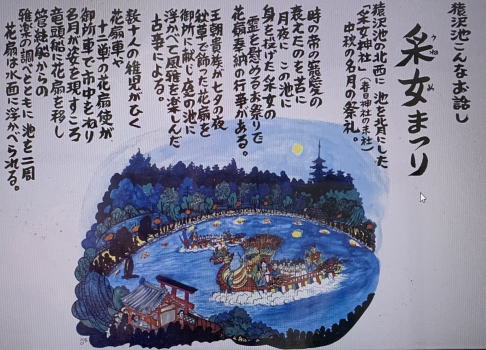 猿沢池こんなお話し
采女まつり
うねめ
猿沢池の北西に 池を背にした
「采女神社」(春日神社の末社)
中秋の名月の祭礼。
時の帝の寵愛の
衰えたのを苦に
月夜に この池に
身を投げた采女の
霊を慰めるお祭りで
花扇奉納の行事がある。
王朝貴族が七夕の夜
秋草で飾った花扇を
御所に献じ庭の池に
浮かべて風雅を楽しんだ
古事による。
数十人の稚児がひく
花扇車や
十二単の花扇使が
御所車で市中をねり
名月が姿を現すころ
竜頭船に花扇を移し
管絃船からの
雅楽の調べとともに池を二周
花扇は水面に浮かべられる。